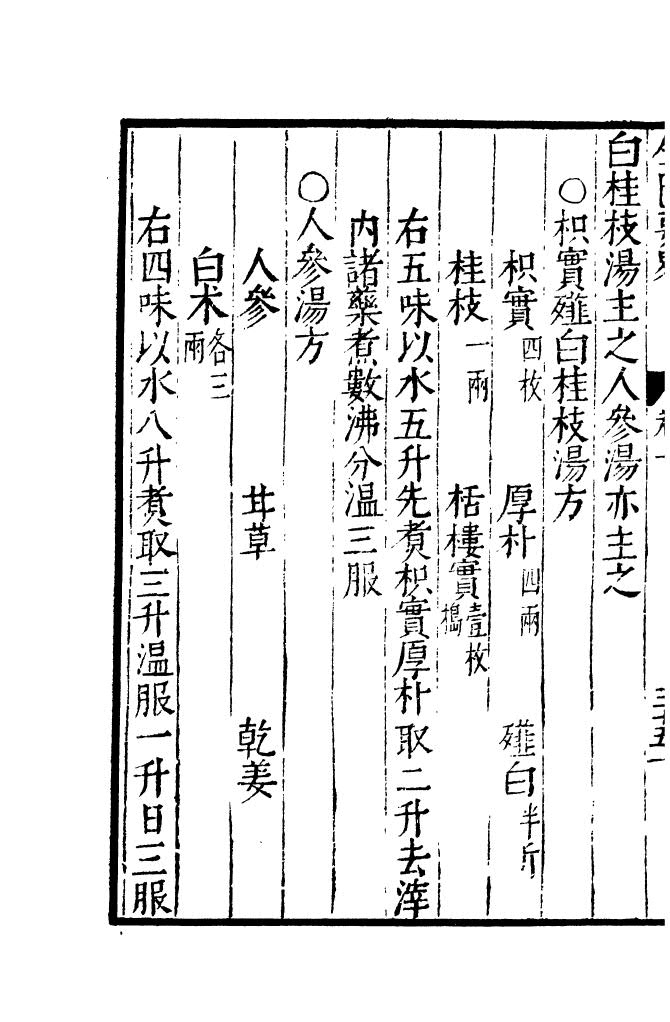 白桂枝湯主之人參湯亦主之
○枳實薤白桂枝湯方
枳實四枚 厚朴四兩 薤白半斤
桂枝一兩 栝樓實壹枚搗
右五味以水五升先煮枳實厚朴取二升去滓
内諸藥煮數沸分温三服
○人參湯方
人參 甘草 乾姜
白术各三兩
右四味以水八升煮取三升温服一升日三服